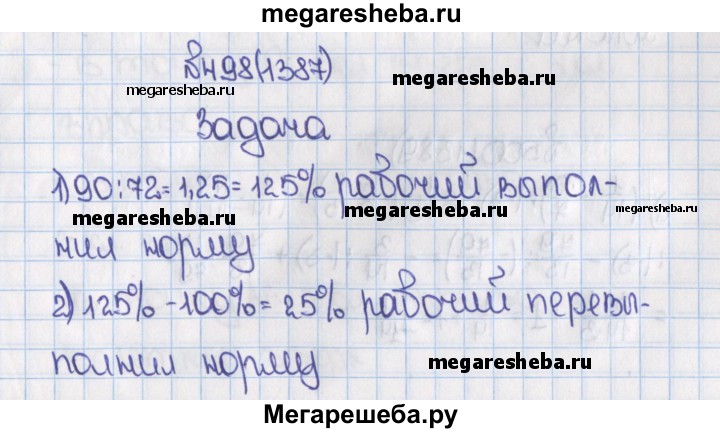 megaresheba.ru
№498(1387)
megaresheba.ru
megaresheba.ru
Задача
1) 90:72=1,25=125% рабочий выпол-
megaresheba.ru
megaresheba.ru
megaresheba.ru
нил норму
2) 125%-100%=25% рабочий перевы-
полнил норму
megaresheba.ru
Мегарешеба.ру